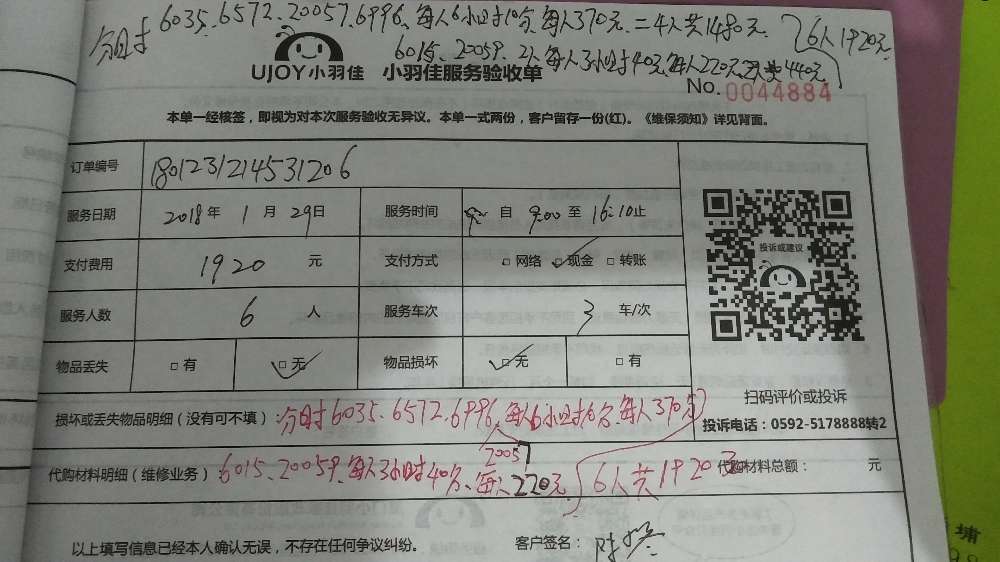 分时 6035.6572.20057.6996.每人6小时10分.每人370元.=4人共1480元. 6人1920元
6015.20059.2人每人3小时40分.每人220元.2人共440元.
UJOY小羽佳 小羽佳服务验收单
No. 0044884
本单一经核签,即视为对本次服务验收无异议。本单一式两份,客户留存一份(红)。《维保须知》详见背面。
订单编号 180123121453​1206
服务日期 2018年 1月29日 服务时间 自 9:00 至 16:10止
支付费用 1920 元 支付方式 □网络 □现金 □转账
服务人数 6 人 服务车次 3 车/次
物品丢失 □有 □无 物品损坏 □无 □有
投诉或建议
扫码评价或投诉
投诉电话:0592-5178888转2
损坏或丢失物品明细(没有可不填): 分时6035.6572.6996.每人6小时10分.每人370元
20057
代购材料明细(维修业务) 6015、20059.每人3小时40分、每人220元 6人共1920元 代购材料总额: 元
以上填写信息已经本人确认无误,不存在任何争议纠纷。 客户签名:
埔